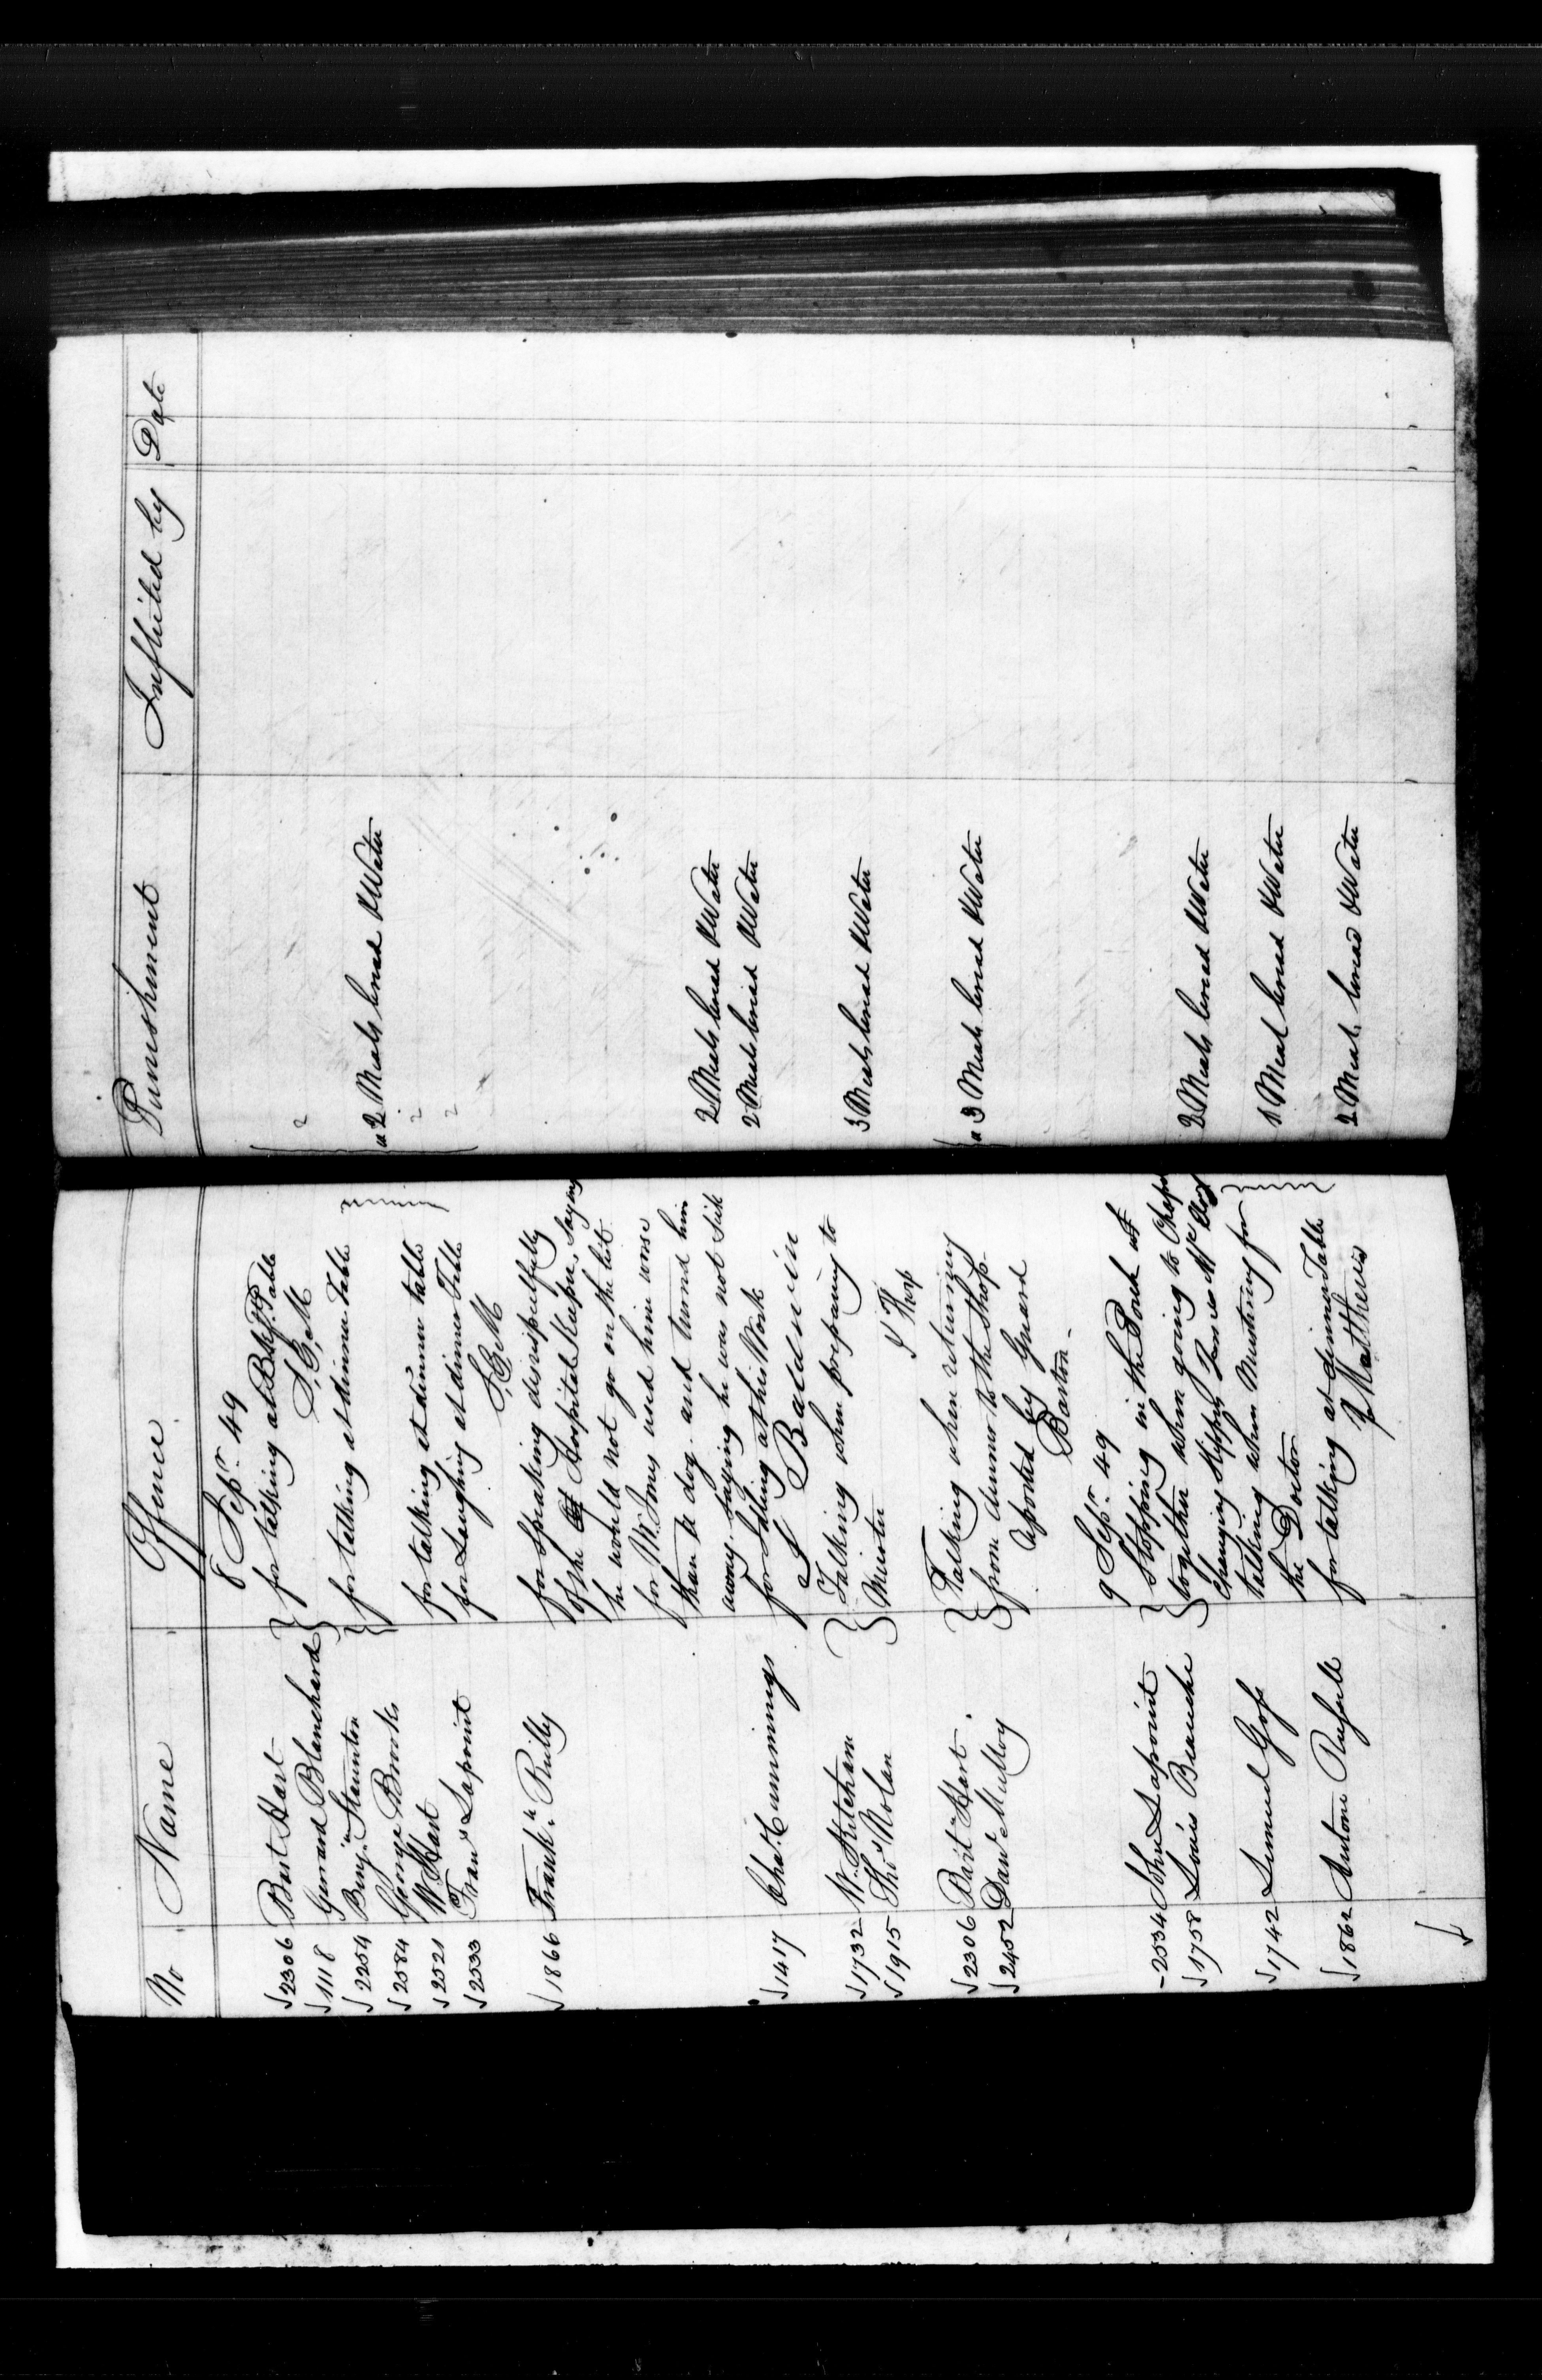 No Name Offence Punishment Inflicted by Date
8 Sepr. 49
2306 Bart Hart for talking at Bkft. Table 2
1118 Gerrard Blanchard S,E,M
2254 Benjn. Staunton for talking at dinner Table a 2 Meals bread & Water
2584 George Brooks 2
2521 W. Hart for talking at dinner table 2
2533 Frans Lapoint for Laughing at dinner Table
S,E,M
1866 Frankn. Reilly for Speaking disrespectfully
of the Hospital Keeper, Saying
he would not go on the list
for Mr. used him worse
than a dog. and turned him
away. saying he was not sick 2 Meals bread & Water
1417 Chas. Cummings for Idling at his Work 2 Meals bread & Water
S Baldwin
1732 W. Ketcham Talking when preparing to 3 Meals bread & Water
1915 Thos. Nolan Muster
2306 Bart Hart. Talking when returning a 3 Meals bread & Water
2452 Danl. Mulloy from dinner to the Shop
reported by Guard
Barton-
9 Sepr. 49
2534 John Lapoint Stopping in the
1758 Louis Beauche together when going to Chapel 3 Meals bread & Water
Changing Stepps
1742 Lemuel Goss talking when Mustering for 1 Meal bread & Water
the Doctor
1862 Antoni for talking at dinner Table 2 Meals bread & Water
J Matthews